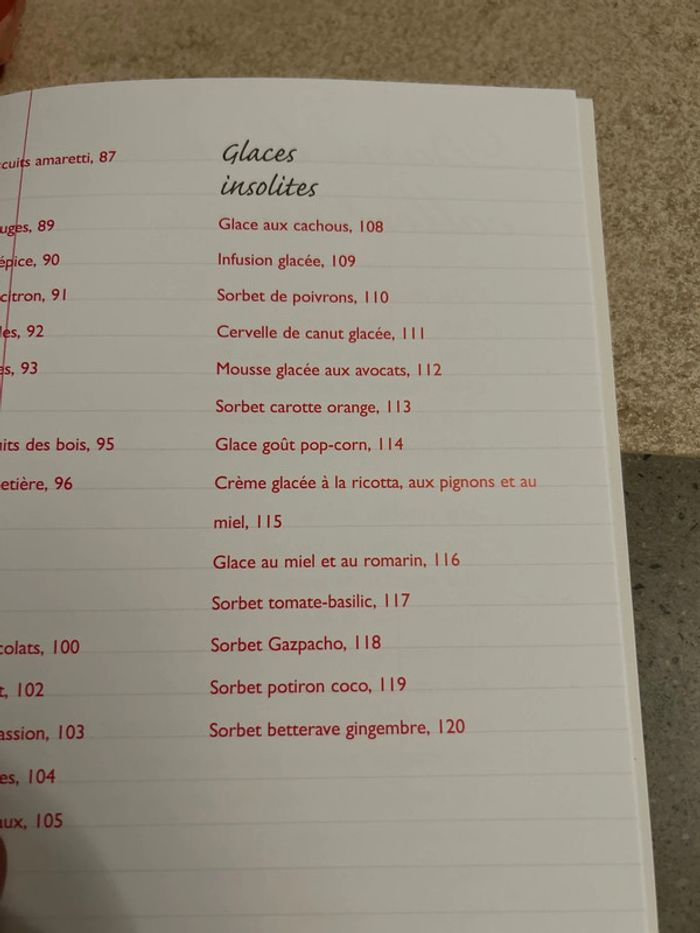 amaretti, 87
89
90
91
92
93
des bois, 95
96
100
102
103
104
105
Glaces
insolites
Glace aux cachous, 108
Infusion glacée, 109
Sorbet de poivrons, 110
Cervelle de canut glacée, 111
Mousse glacée aux avocats, 112
Sorbet carotte orange, 113
Glace goût pop-corn, 114
Crème glacée à la ricotta, aux pignons et au
miel, 115
Glace au miel et au romarin, 116
Sorbet tomate-basilic, 117
Sorbet Gazpacho, 118
Sorbet potiron coco, 119
Sorbet betterave gingembre, 120